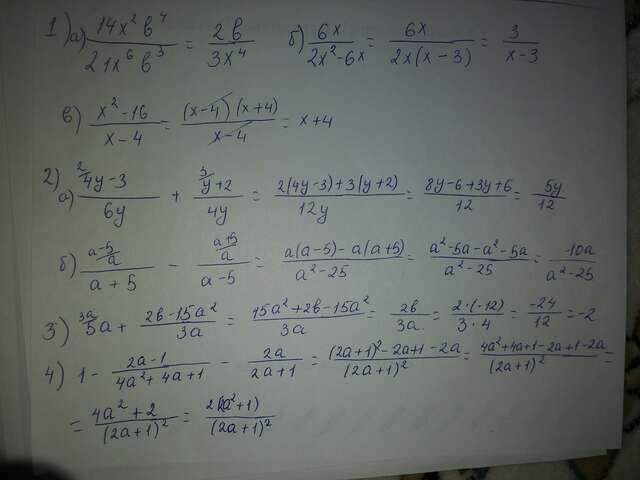 1) а) 14x²в⁴/21x⁶в³ = 2в/3x⁴ б) 6x/2x²-6x = 6x/2x(x-3) = 3/x-3
в) x²-16/x-4 = (x-4)(x+4)/x-4 = x+4
2) а) ²/4y-3/6y + ³/y+2/4y = 2(4y-3)+3(y+2)/12y = 8y-6+3y+6/12 = 5y/12
б) a-5/a/a+5 - a+5/a/a-5 = a(a-5)-a(a+5)/a²-25 = a²-5a-a²-5a/a²-25 = -10a/a²-25
3) ³ᵃ/5a + 2в-15a²/3a = 15a²+2в-15a²/3a = 2в/3a = 2·(-12)/3·4 = -24/12 = -2
4) 1 - 2a-1/4a²+4a+1 - 2a/2a+1 = (2a+1)²-2a+1-2a/(2a+1)² = 4a²+4a+1-2a+1-2a/(2a+1)² =
= 4a²+2/(2a+1)² = 2(2a²+1)/(2a+1)²